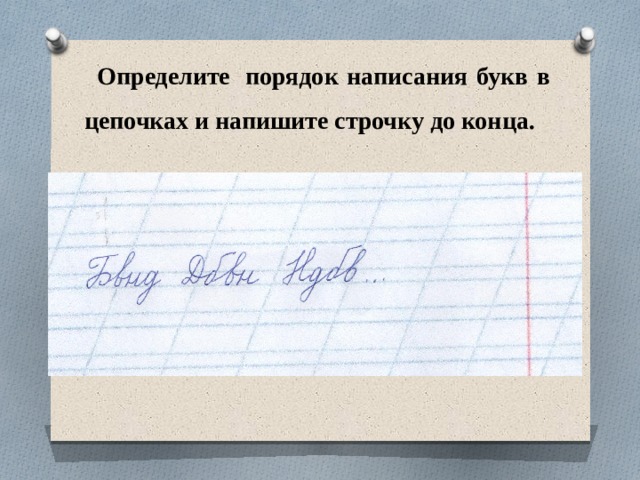 Определите порядок написания букв в
цепочках и напишите строчку до конца.
Бвнд Дбвн Ндбв...